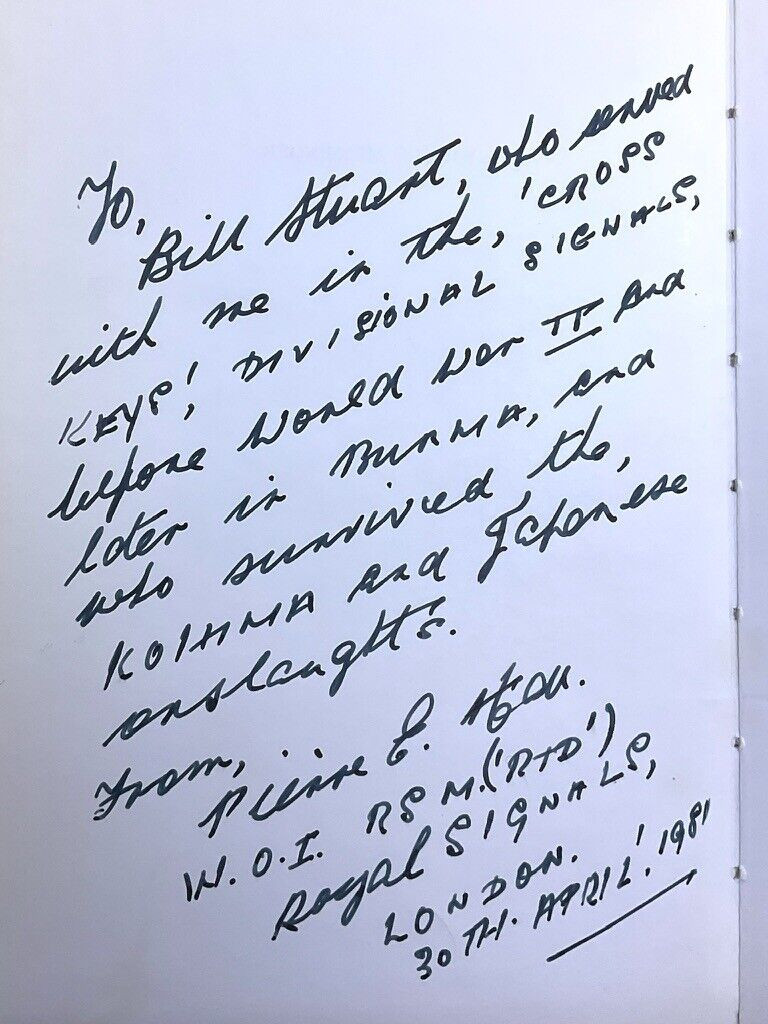 To,
Bill Stuart, who served
with me in the, 'CROSS
KEYS', DIVISIONAL SIGNALS,
before World War II and
later in BURMA, and
who survived the,
KOIHMA and Japanese
onslaughts.
From,
Pierre E.
W.O.I. RSM. ('RTD')
Royal SIGNALS,
LONDON.
30TH. APRIL'. 1981